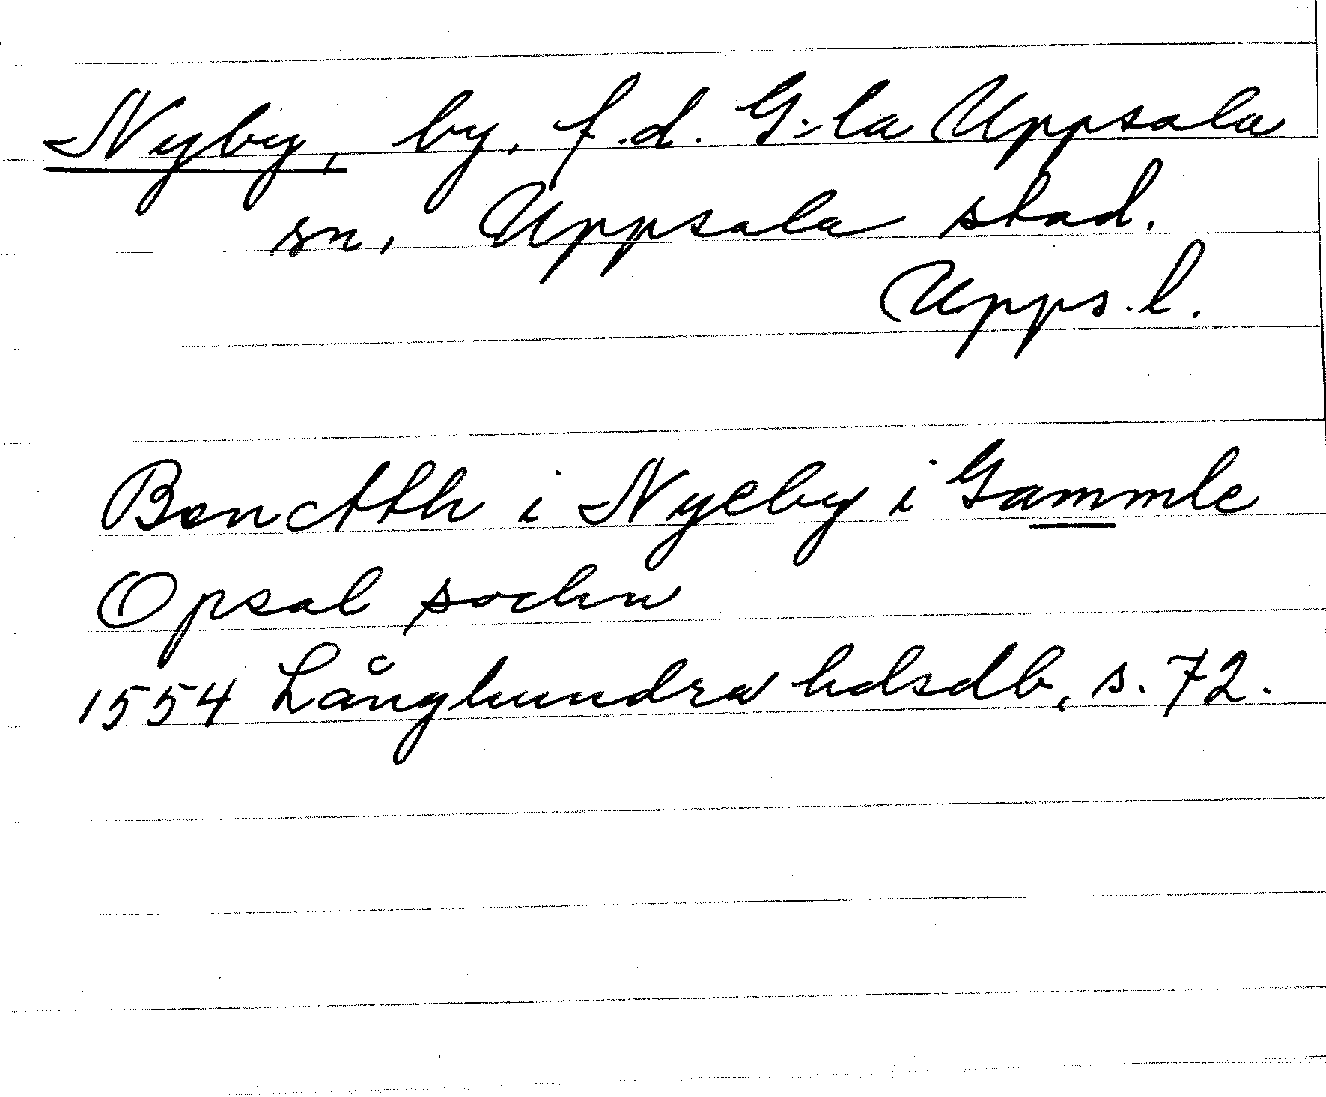 Nyby, by, f.d. G:la Uppsala
sn, Uppsala stad.
Upps. l.
Benctth i Nyeby i Gammle
Opsal sochn
1554 Långhundra hdsdb, s. 72.